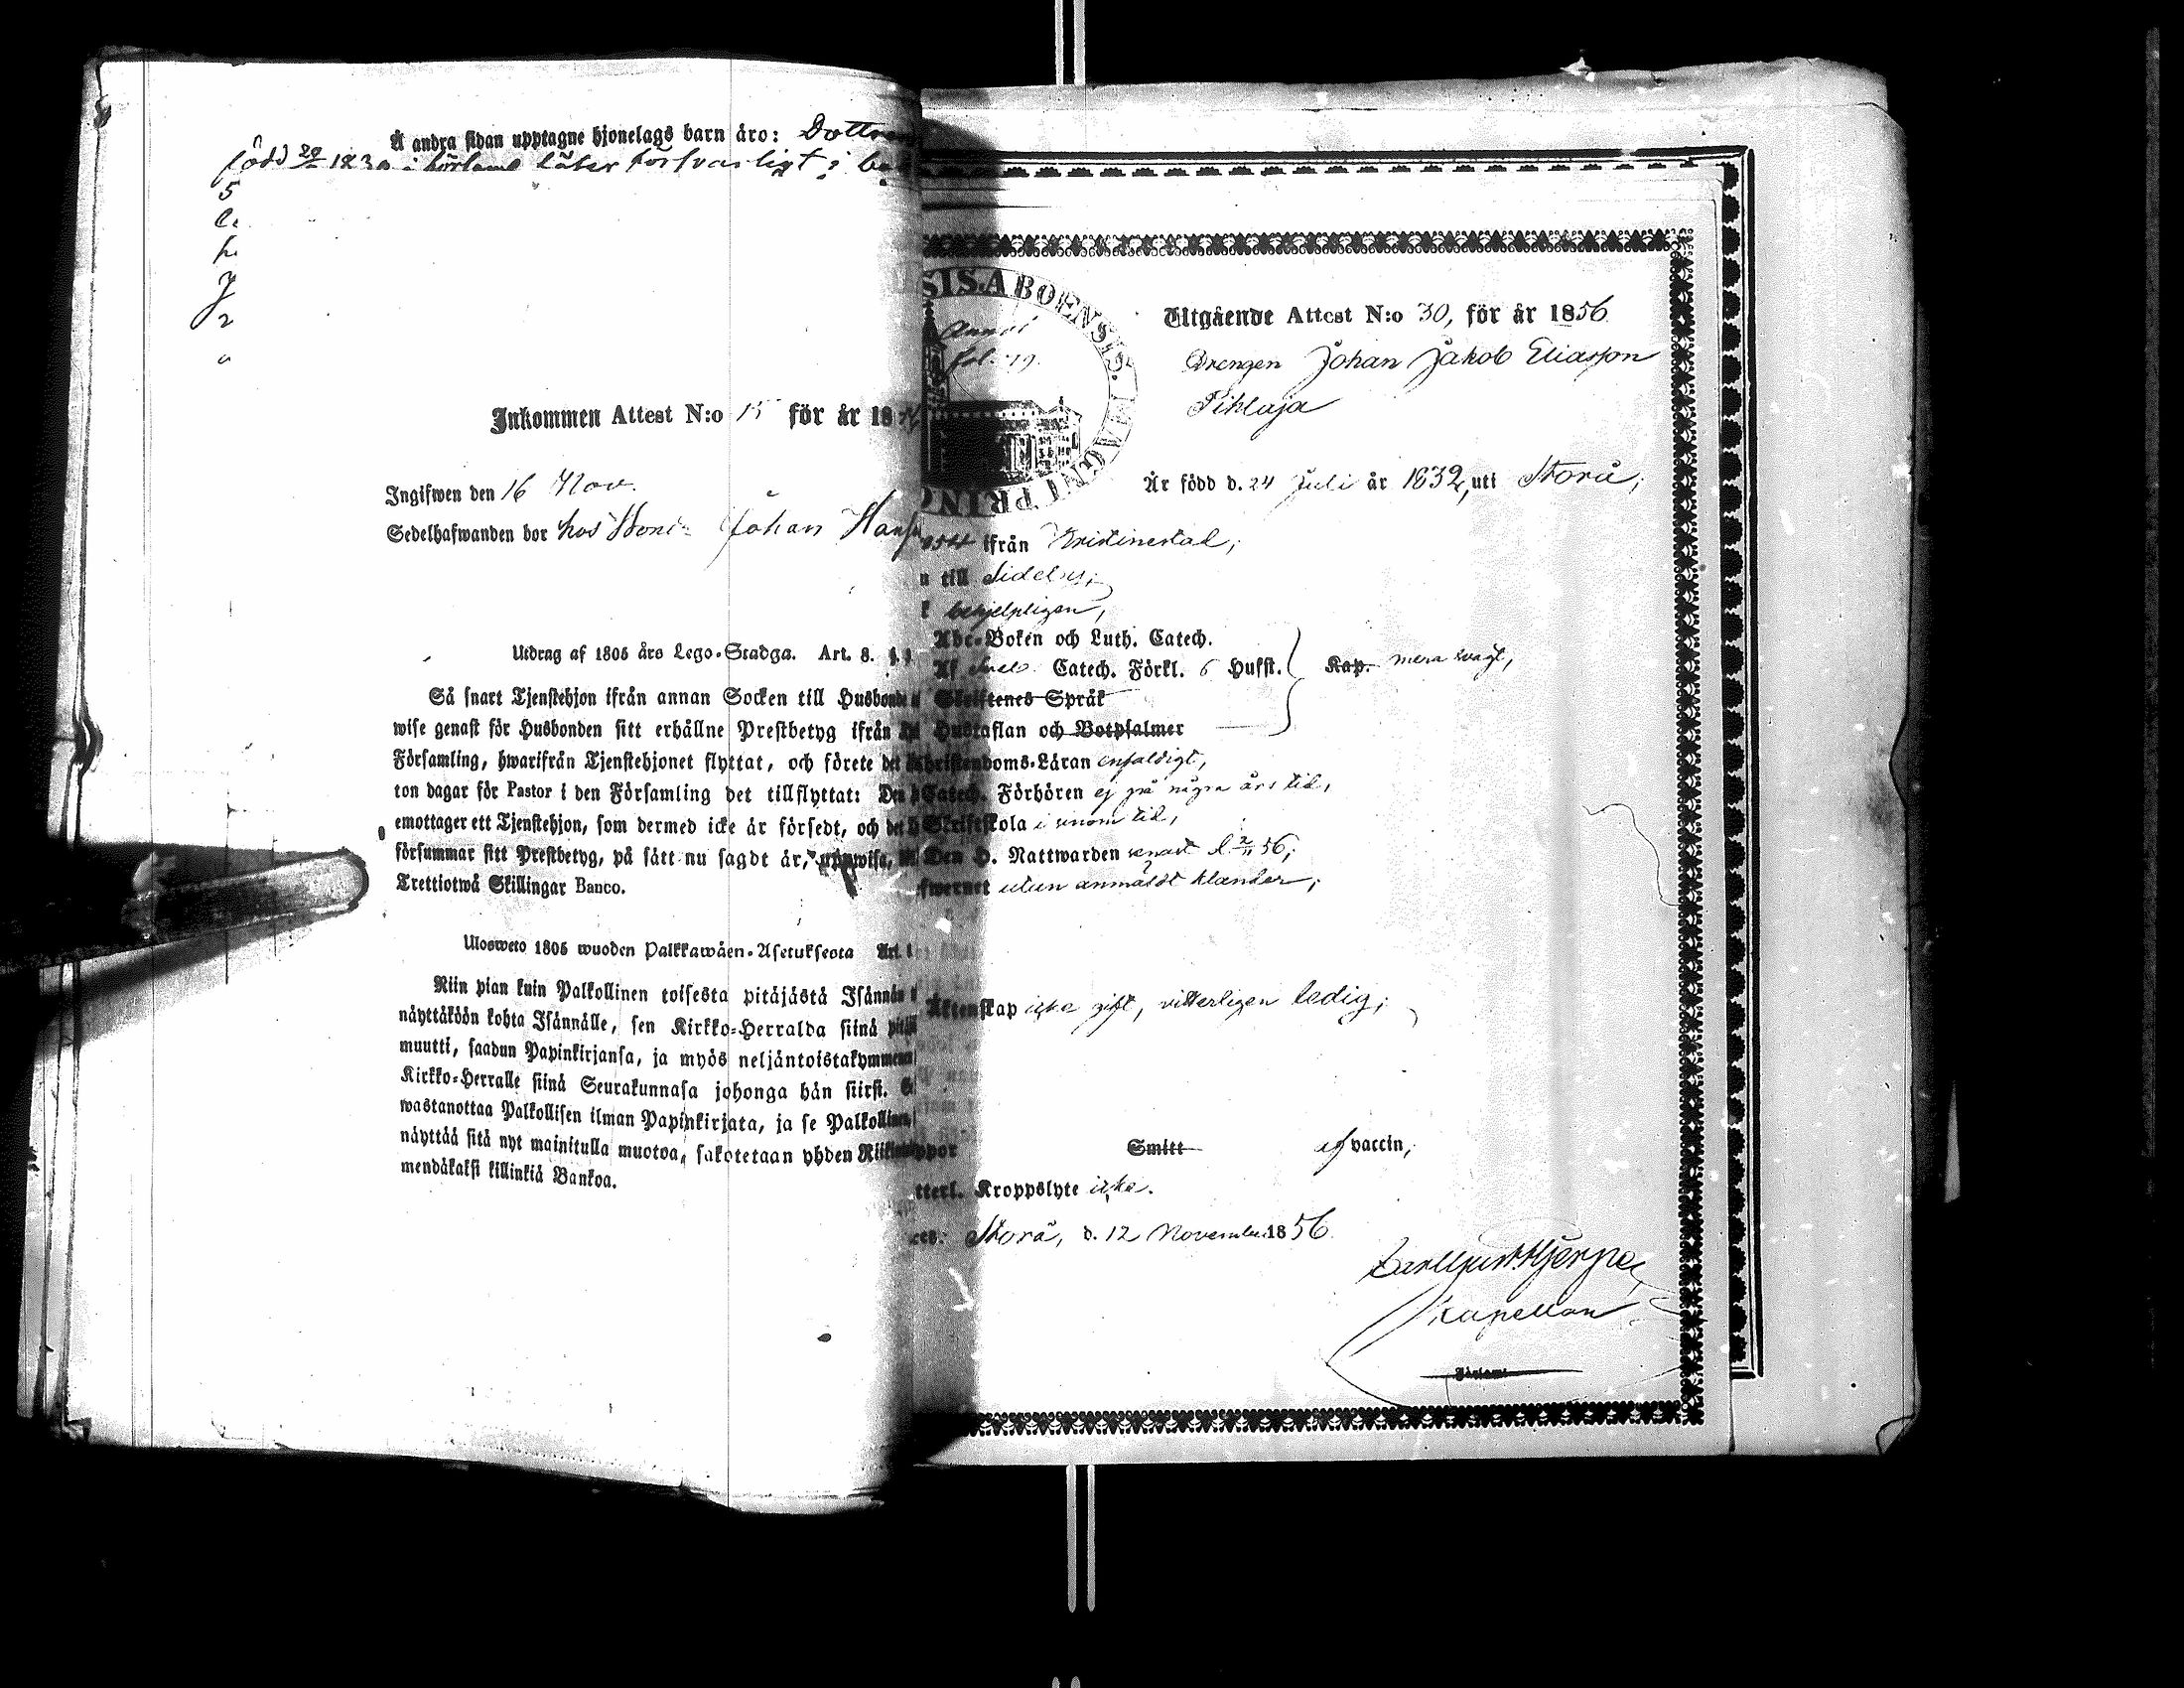 Å andra sidan upptagne hjonelags barn äro:
född 20 183 i låter försvarligt i
5
2
Inkommen Attest N:o 15 för år 18
Ingifwen den 16 Nov.
Sedelhafwanden bor hos Johan
Utdrag af 1805 års Lego-Stadga. Art. 8. §.
Så snart Tjenstehjon ifrån annan Socken till Husbonde
wise genast för Husbonden sitt erhållne Prestbetyg ifrån
Församling, hwarifrån Tjenstehjonet flyttat, och förete det
ton dagar för Pastor i den Församling det tillflyttat: Den
emottager ett Tjenstehjon, som dermed icke är försedt, och det
försummar sitt Prestbetyg, på sätt nu sagdt är, uppwisa,
Trettiotwå Skillingar Banco.
Ulosweto 1805 wuoden Palkkawäen-Asetuksesta Art.
Niin pian kuin Palkollinen toisesta pitäjästä Isännän
näyttäköön kohta Isännälle, sen Kirkko-Herralda siinä
muutti, saadun Papinkirjansa, ja myös neljäntoistakymmenen
Kirkko-Herralle siinä Seurakunnasa johonga hän siirsi.
wastanottaa Palkollisen ilman Papinkirjata, ja se Palkollinen
näyttää sitä nyt mainitulla muotoa, sakotetaan yhden
mendäkaksi killinkiä Bankoa.
SIS. ABOENSIS. MAGNI PRINC
fol. 19.
Utgående Attest N:o 30, för år 1856
Drengen Johan Jakob Eliasson
Pihlaja
Är född d. 24 Juli år 1832, uti Storå,
1854 ifrån Kristinestad;
till Sideby;
behjelpligen,
Abc-Boken och Luth. Catech.
Af Catech. Förkl. 6 Hufst. Kap. mera svagt,
Skriftenes Språk
Hustaflan och Botpsalmer
Christendoms-Läran enfaldigt,
Catech. Förhören ej på några års tid,
Skriftskola i sinom tid,
Den H. Nattwarden senast d. 2/11 56;
fwernet utan anmäldt klander;
Äktenskap icke gift, vitterligen ledig;
ppor Smitt af vaccin,
tterl. Kroppslyte icke.
Storå, d. 12 November 1856
Hjerpe,
Kapellan